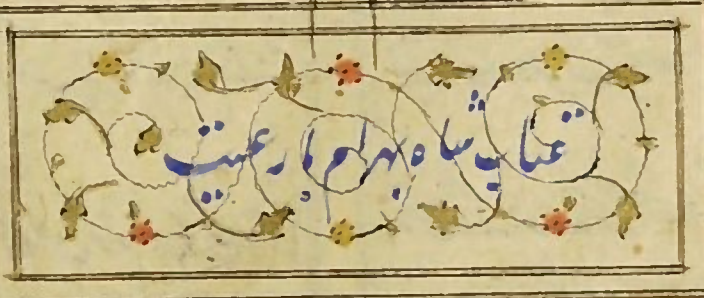 عتاب شاه بهرام با رعیت